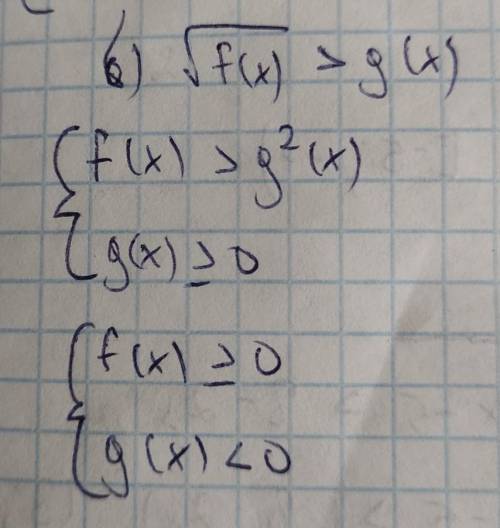 б) √f(x) > g(x)
{ f(x) > g²(x)
g(x) ≥ 0
{ f(x) ≥ 0
g(x) < 0